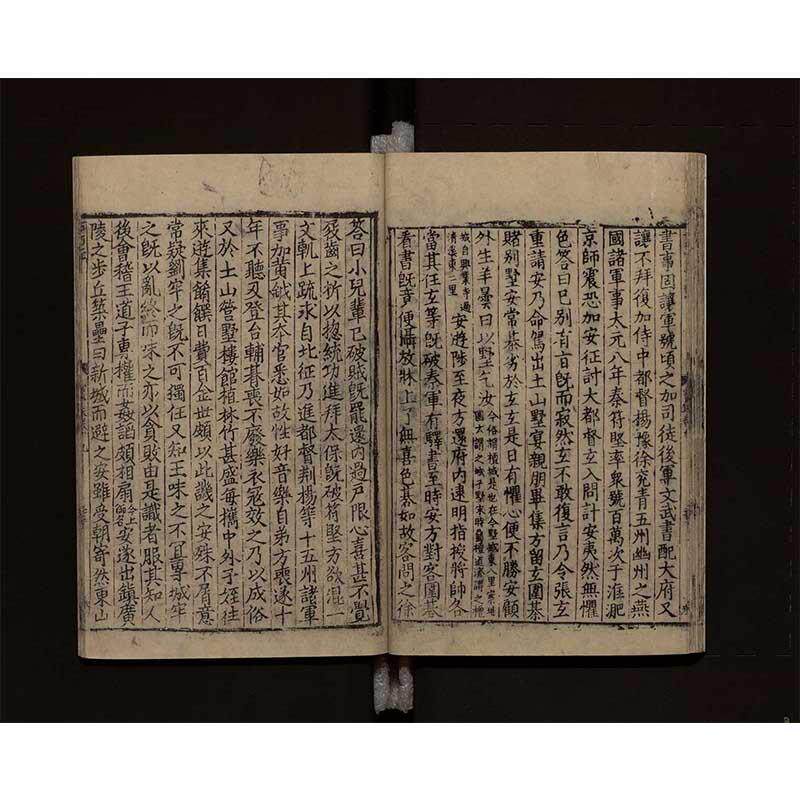 書事固讓軍號頃之加司徒後軍文武書配大府又
讓不拜復加侍中都督揚豫徐兗青五州幽州之燕
國諸軍事太元八年秦符堅率衆號百萬次于淮肥
京師震恐加安征討大都督玄入問計安夷然無懼
色答曰已别有旨既而寂然玄不敢復言乃令張玄
重請安乃命駕出土山墅宴親朋畢集方留玄圍碁
賭别墅安常碁劣於玄玄是日有懼心便不勝安顧
外生羊曇曰以墅乞汝
安遊陟至夜方還府内速明指授將帥各
當其任玄等既破秦軍有驛書至時安方對客圍碁
看書既竟便攝放牀上了無喜色碁如故客問之徐
答曰小兒輩已破賊既罷還内過戶限心喜甚不覺
屐齒之折以揔統功進拜太保既破符堅方欲混一
文軌上疏求自北征乃進都督荆楊等十五州諸軍
事加黄鉞其本官悉如故性好音樂自弟万喪遂十
年不聽及登台輔朞喪不廢樂衣冠效之乃以成俗
又於土山營墅樓館植林竹甚盛每攜中外子姪往
來遊集餚饌日費百金世頗以此譏之安殊不屑意
常疑劉牢之既不可獨任又知王味之不宜專城牢
之既以亂終而味之亦以貪敗由是識者服其知人
後會稽王道子専權而姦諂頗相扇安遂出鎭廣
陵之步丘築壘曰新城而避之安雖受朝寄然東山